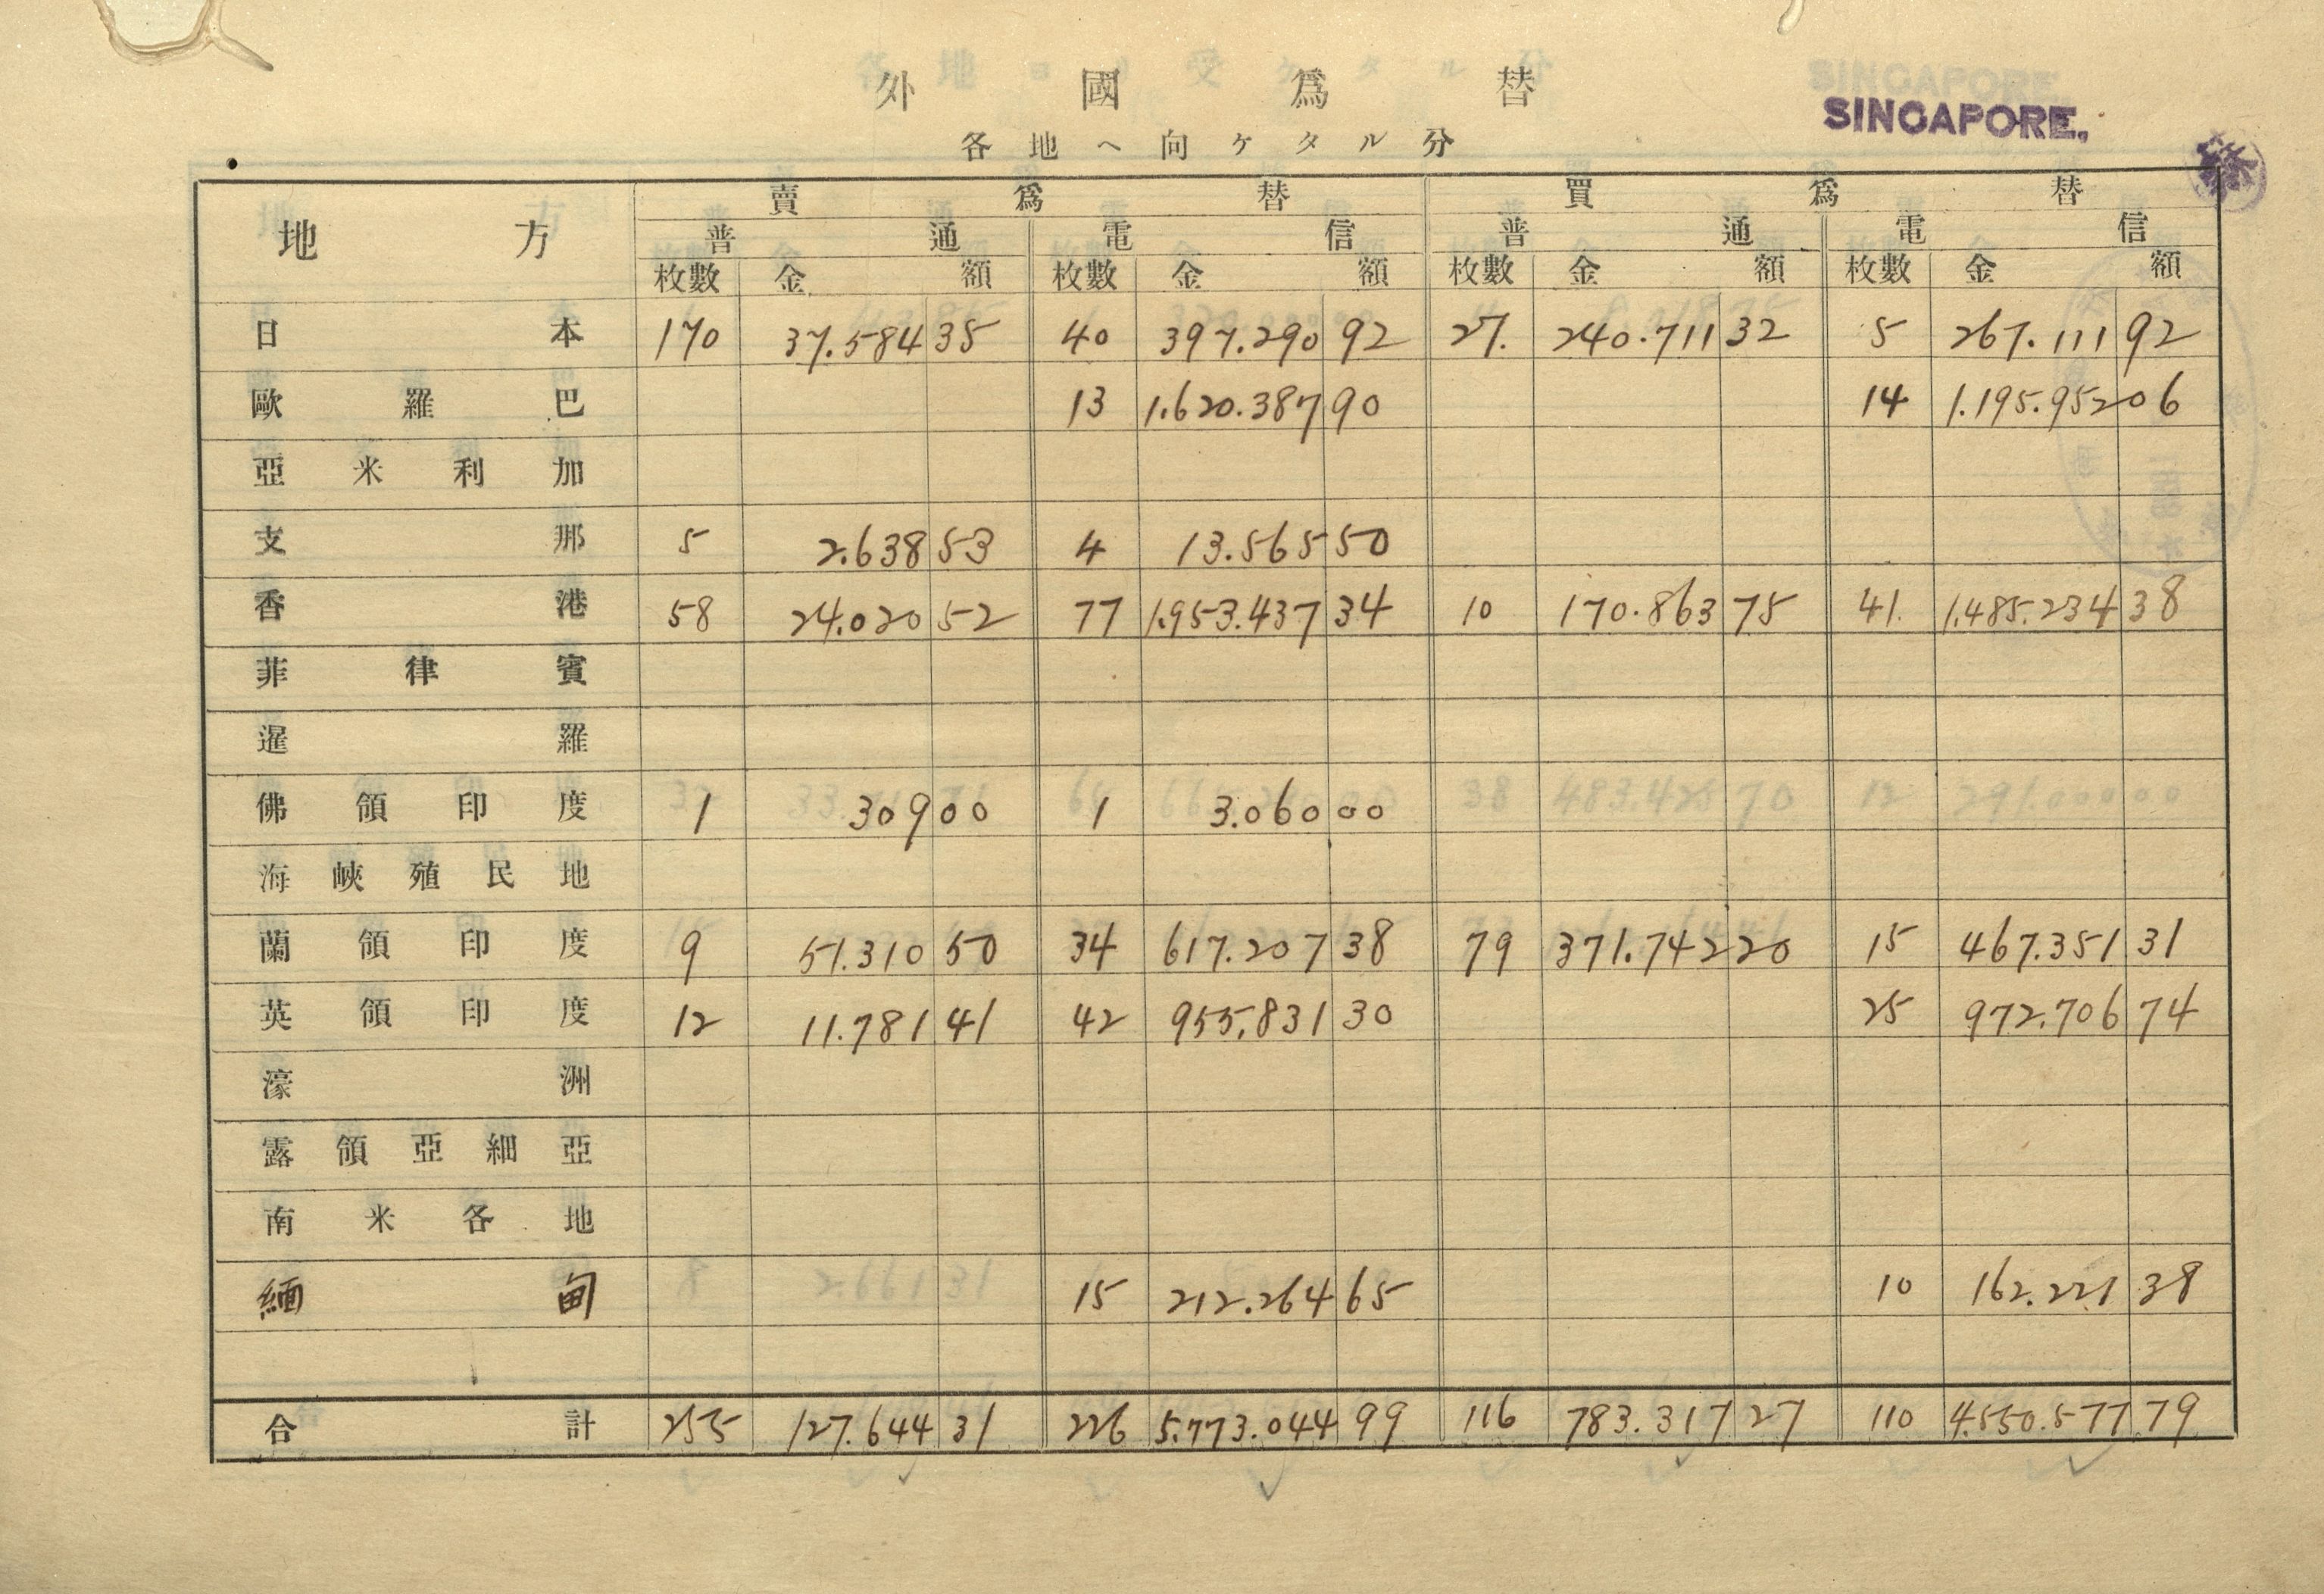 外國爲替
SINGAPORE,
各地ヘ向ケタル分
地方 賣爲替 買爲替
普通 電信 普通 電信
枚數 金額 枚數 金額 枚數 金額 枚數 金額
日本 170 37.584 35 40 397.290 92 27. 240.711 32 5 267.111 92
歐羅巴 13 1.620.387 90 14 1.195.952 06
亞米利加
支那 5 2.638 53 4 13.565 50
香港 58 24.020 52 77 1.953.437 34 10 170.863 75 41. 1.485.234 38
菲律賓
暹羅
佛領印度 1 309 00 1 3.060 00
海峽殖民地
蘭領印度 9 51.310 50 34 617.207 38 79 371.742 20 15 467.351 31
英領印度 12 11.781 41 42 955.831 30 25 972.706 74
濠洲
露領亞細亞
南米各地
緬甸 15 212.264 65 10 162.221 38
合計 255 127.644 31 226 5.773.044 99 116 783.317 27 110 4.550.577 79